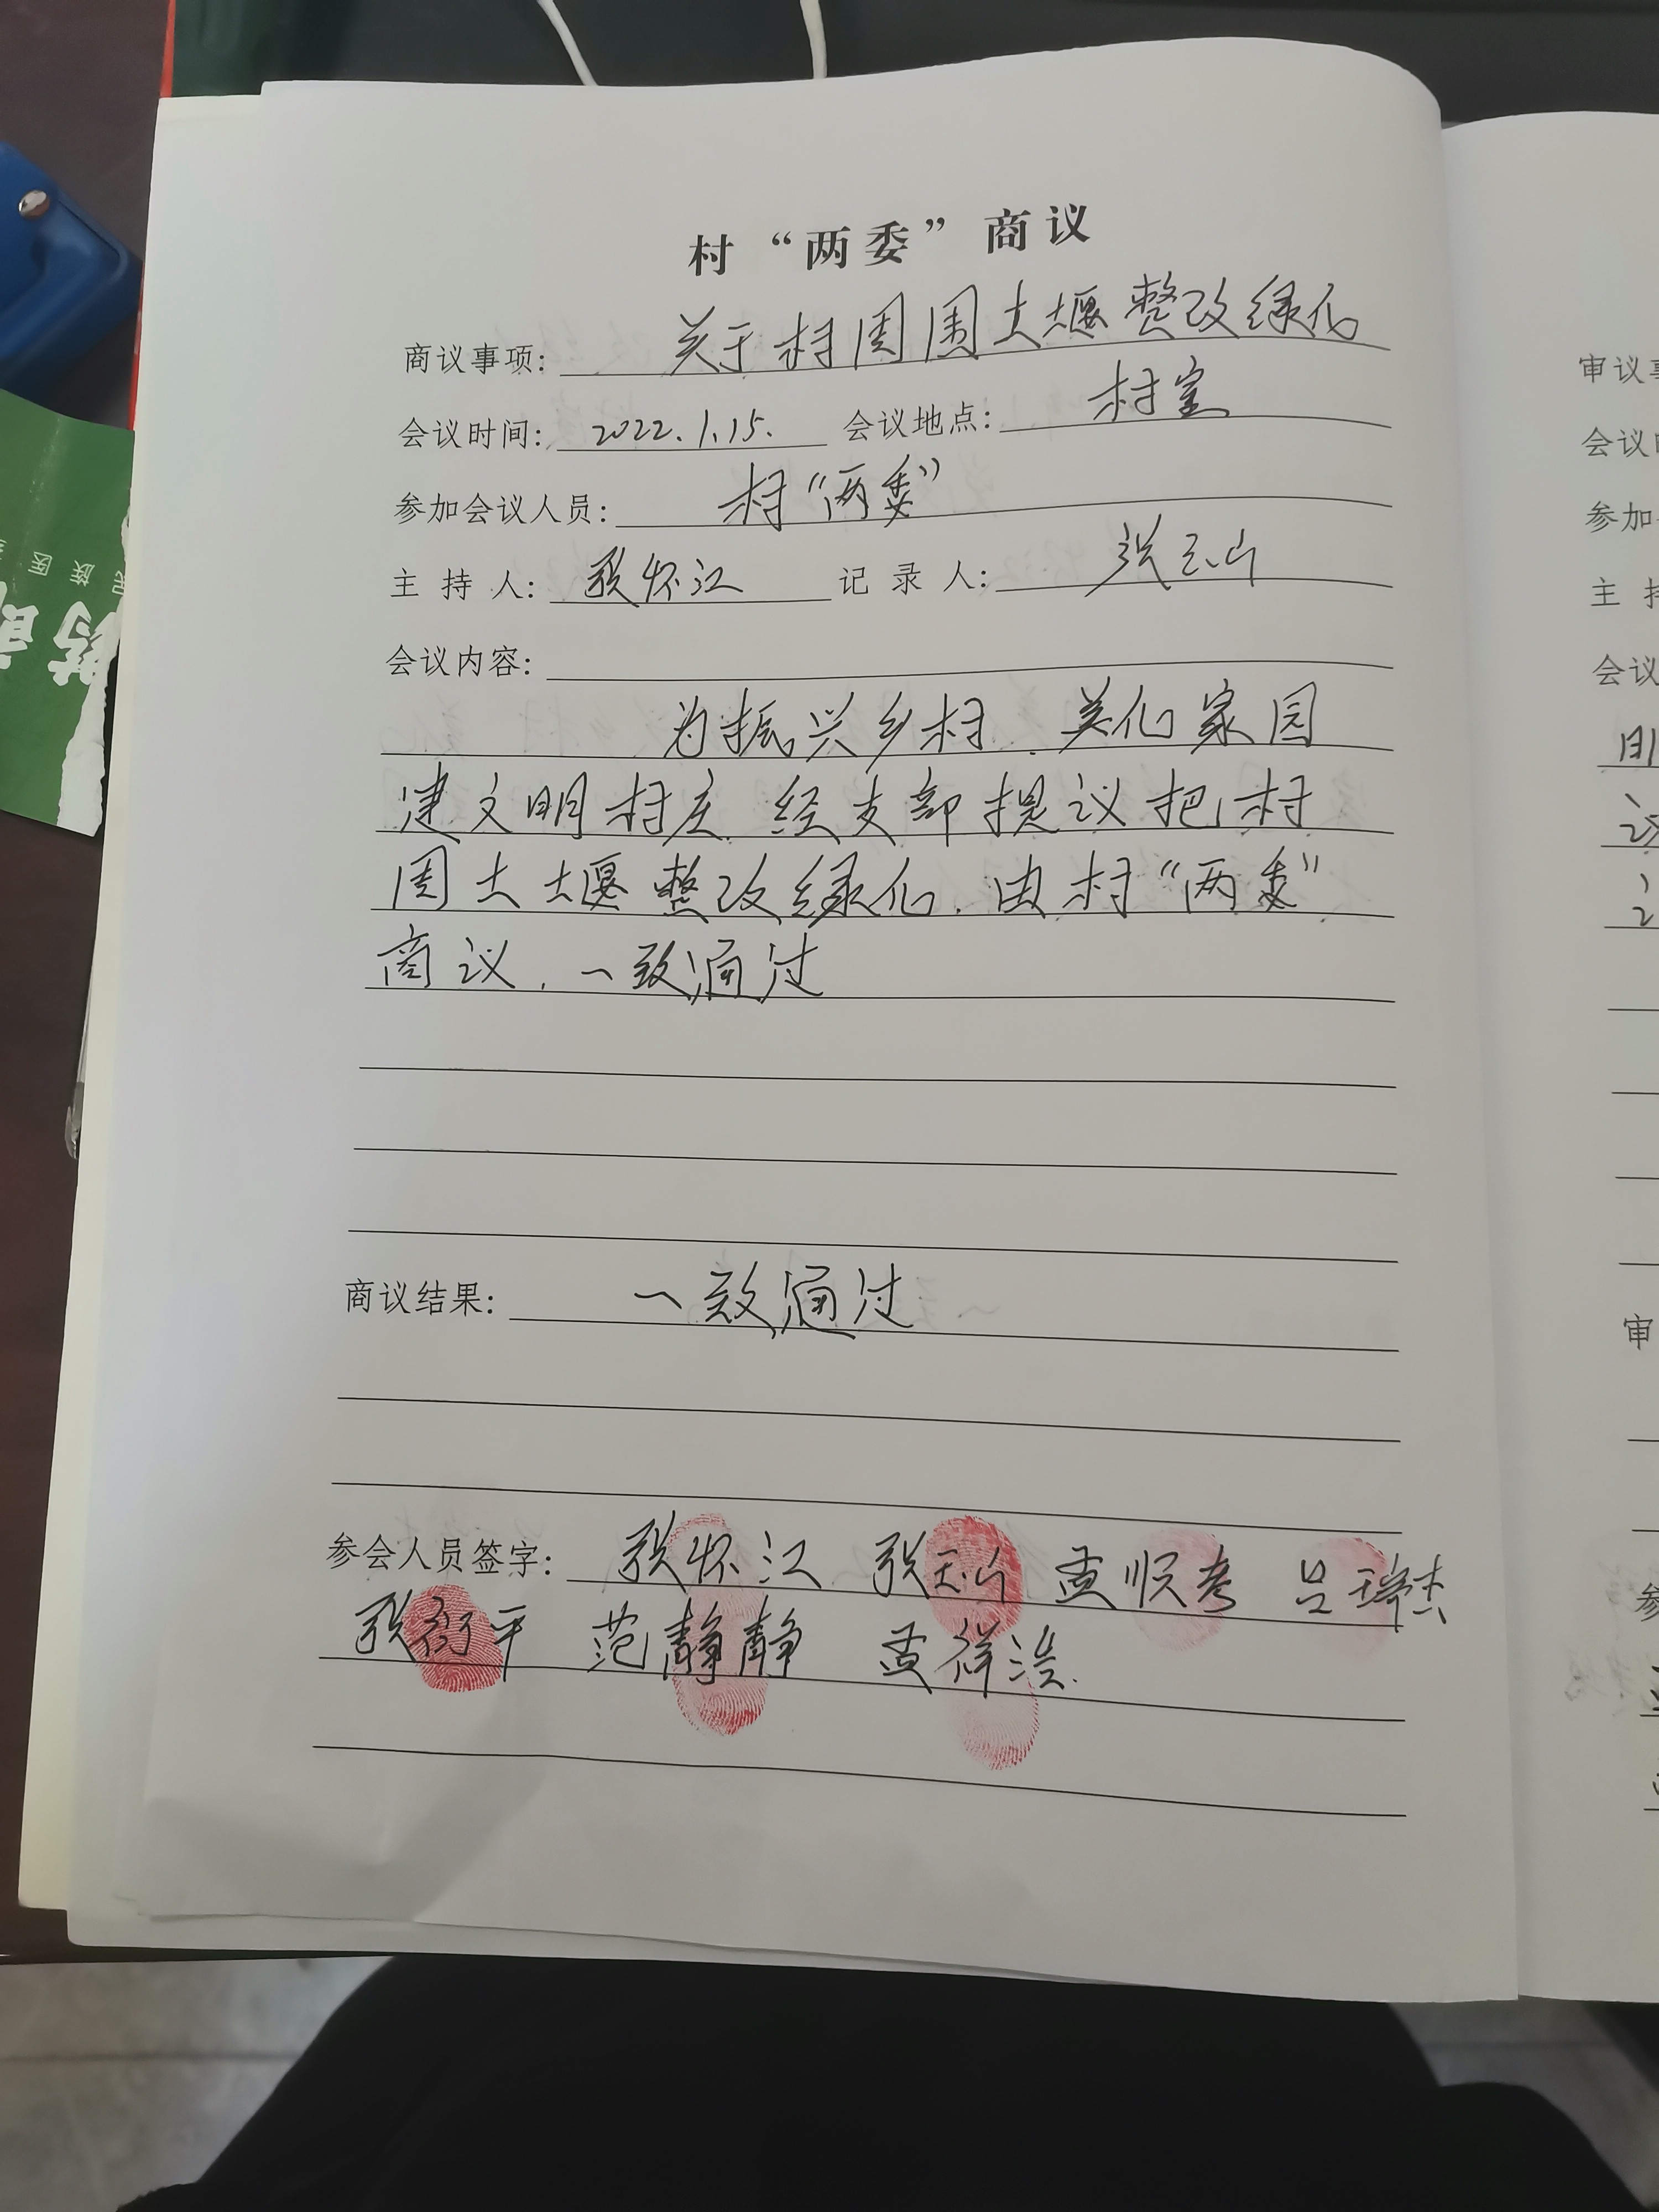 村“两委”商议
商议事项: 关于村周围土堰整改绿化
会议时间: 2022.1.15. 会议地点: 村室
参加会议人员: 村“两委”
主持人: 张怀江 记录人: 张玉山
会议内容:
为振兴乡村.美化家园
建文明村庄.经支部提议把村
周土堰整改绿化.由村“两委”
商议.一致通过
商议结果: 一致通过
参会人员签字: 张怀江 张玉山 孟顺考 吕瑞杰
张衛平 范静静 孟祥浩.
审议事
会议
参加
主持
会议
审
参
民族医